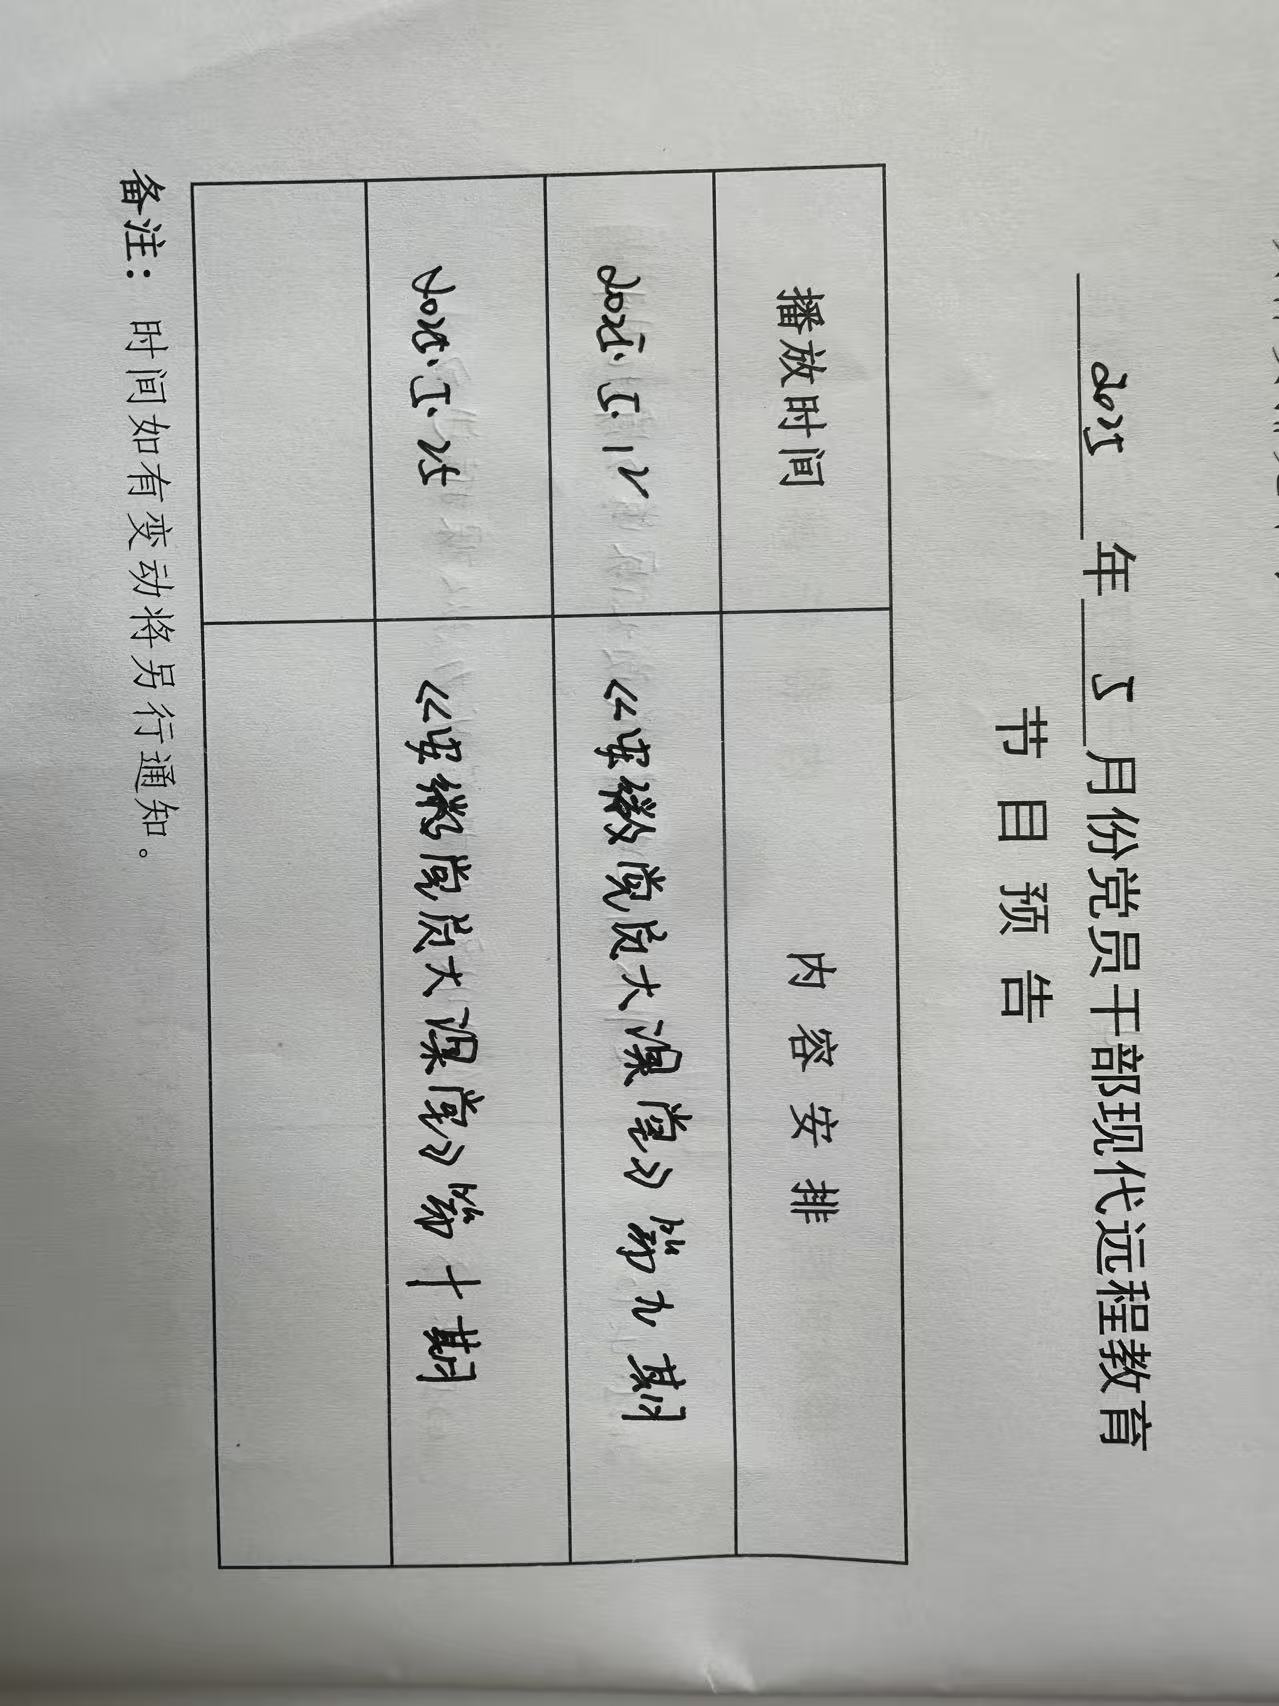 2025年5月份党员干部现代远程教育
节目预告
播放时间 内容安排
2025.5.12 《安徽党员大课堂》第九期
2025.5.25 《安徽党员大课堂》第十期
备注：时间如有变动将另行通知。